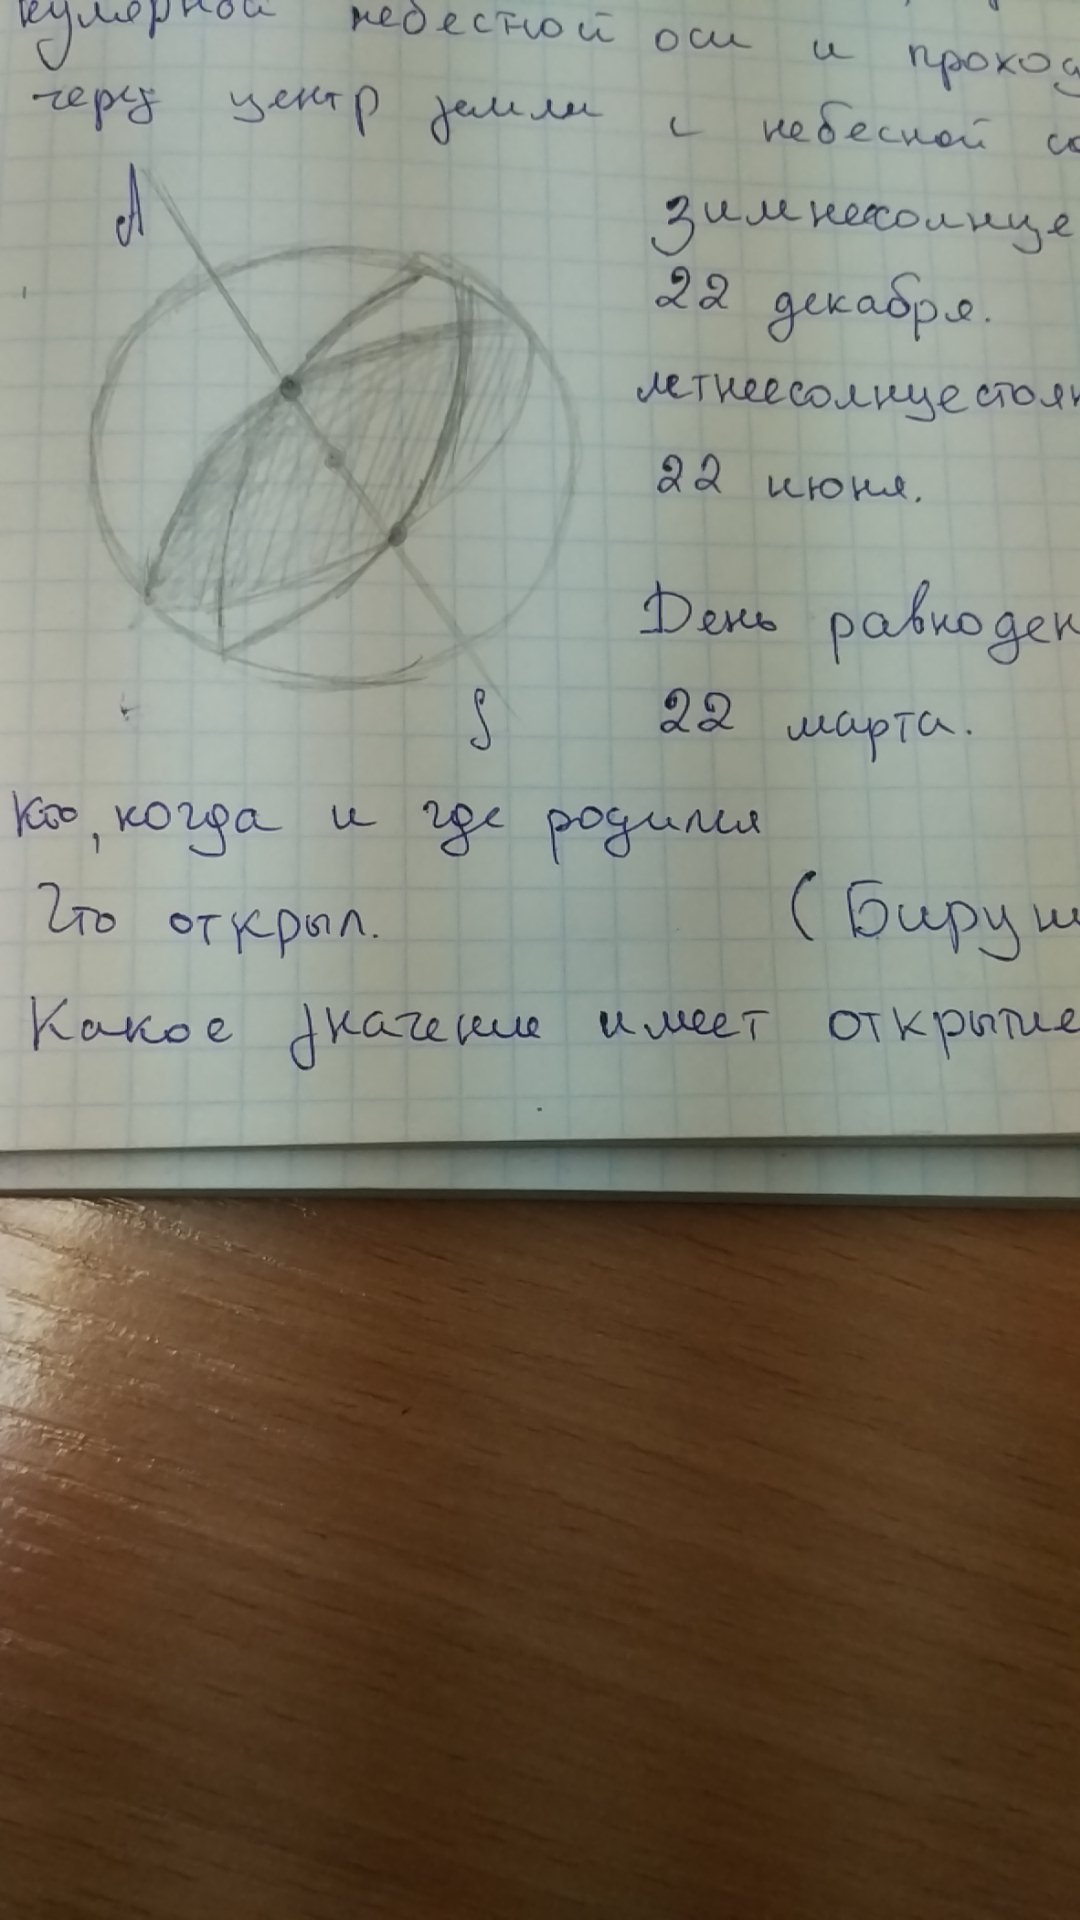 кулярной небестной оси и проход
через центр земли с небесной со
А
зимнеесолнце
22 декабря.
летнеесолнцестоян
22 июня.
День равноден
S
22 марта.
Кто, когда и где родился
Что открыл.
(Бируни
Какое значение имеет открытие